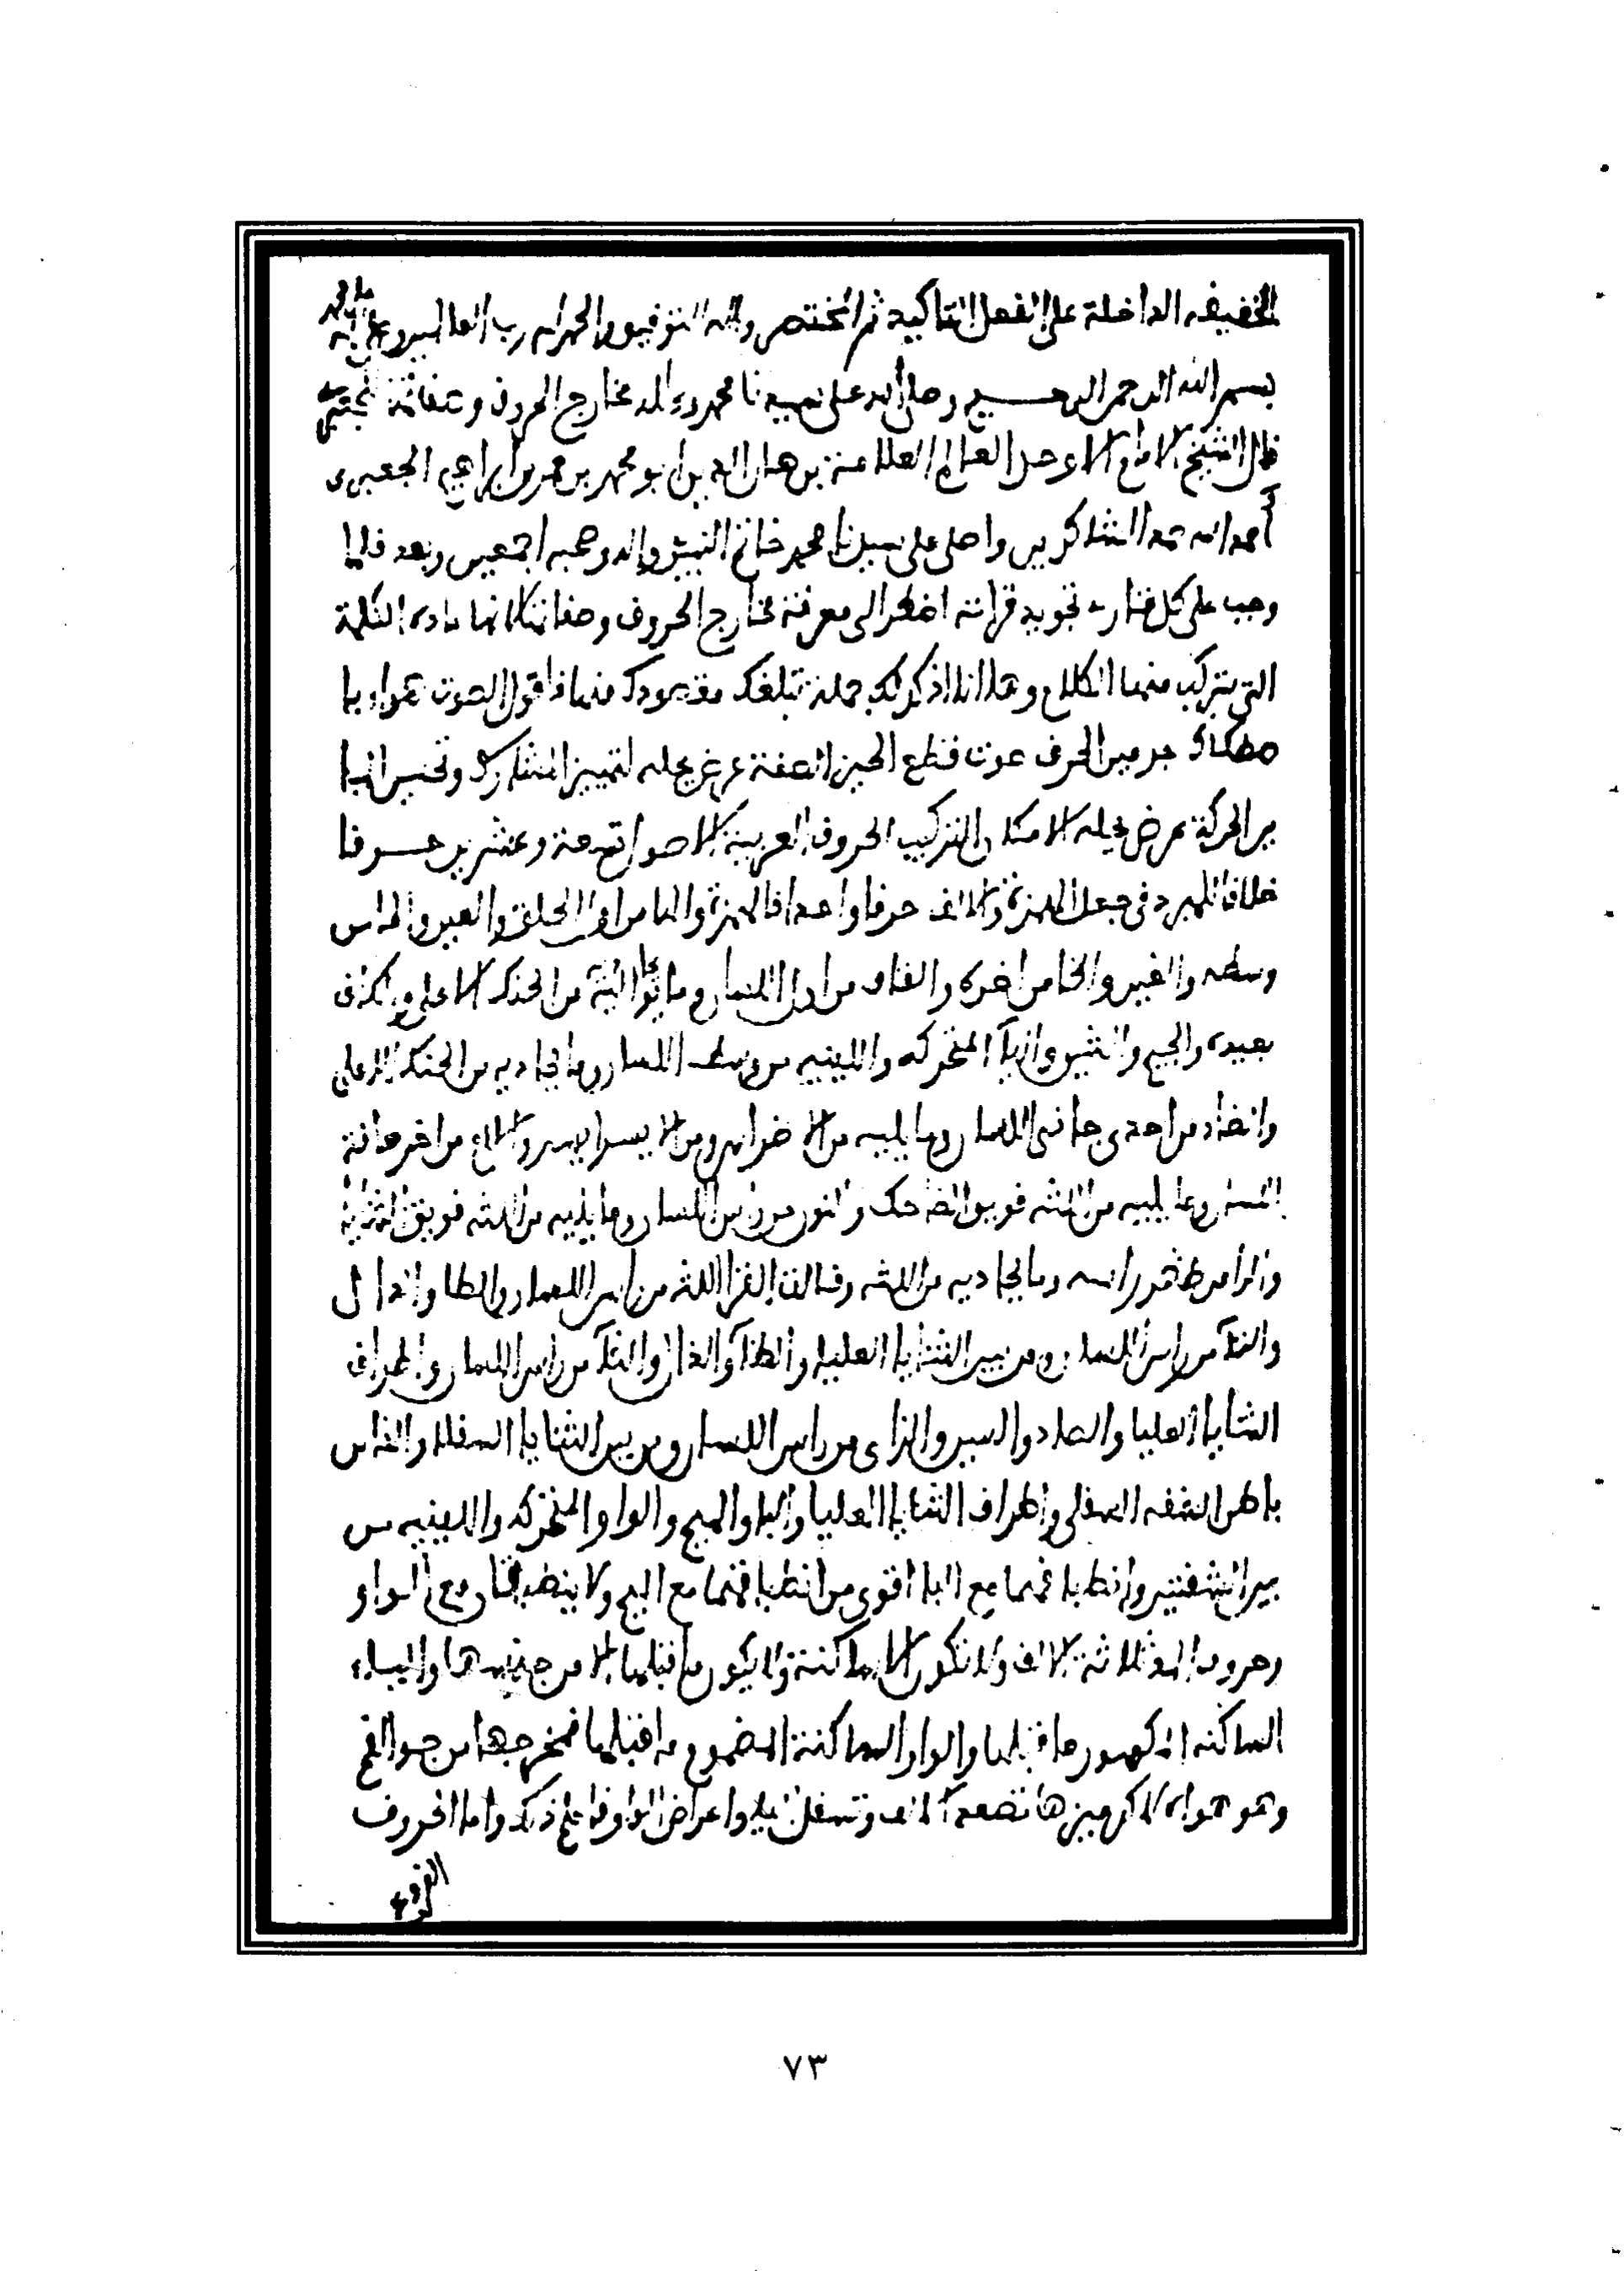 الخفيفه الداخلة على الفعل للتاكيد تم المختصر والله التوفيق والحمد لله رب العالمين وصلى الله
بسم الله الرحمن الرحيم وصلى الله على سيدنا محمد وءاله مخارج الحروف وصفاتها
قال الشيخ الامام الاوحد العالم العلامة برهان الدين ابو محمد بن عمر بن ابراهيم الجعبرى
أحمد الله حمد الشاكرين واصلى على سيدنا محمد خاتم النبيين واله وصحبه اجمعين وبعد فلما
وجب على كل قارئ تجويد قراته اضطر الى معرفة مخارج الحروف وصفاتها لانها مادة الكلمة
التى يتركب منها الكلام وها انا اذكر لك جملة تبلغك مقصودك منها فاقول الصوت هواء با
صطكاك جرمين الحرف صوت قطع الحيز الصفة عرض يحله لتمييز المشارك وتحسين المبا
ين الحركة عرض يحله لامكان التركيب الحروف العربية الاصول تسعة وعشرين حرفا
خلافا للمبرد فى جعل الهمزة والالف حرفا واحدا فالهمزة والها من اول الحلق والعين والحا من
وسطه والغين والخا من اخره والقاف من اول اللسان وما يحاذيه من الحنك الاعلى والكاف
بعيده والجيم والشين واليآ المتحركه واللينيه من وسط اللسان وما يحاذيه من الحنك الاعلى
والضاد من احدى حافتى اللسان وما يليه من الاضراس ومن الايسر ايسر واللام من اخر حافة
اللسان وما يليه من اللثه فويق الضاحك والنون من راس اللسان وما يليه من اللثه فويق الثنايا
والرا من ظهر راسه وما يحاذيه من اللثه وقال الفرا الثلثة من راس اللسان والطا والدال
والتآ من راس اللسان ومن بين الثنايا العليا والظآ والذال والثآ من راس اللسان واطراف
الثنايا العليا والصاد والسين والزاى من راس اللسان ومن بين الثنايا السفلا والفا من
باطن الشفه السفلى واطراف الثنايا العليا والبا والميم والواو المتحركه واللينيه من
بين الشفتين وانطباقهما مع البا اقوى من انطباقهما مع الميم ولا ينطبقان مع الواو
وحروف المد ثلاثة الالف ولا تكون الا ساكنة ولا يكون ما قبلها الا من جنسها والياء
الساكنه المكسور ما قبلها والواو الساكنة المضموم ما قبلها فمخرجها من جو الفم
وهو هواه لاكن ميزها تصعد الالف وتسفل اليا واعراض الواو فاعلم ذلك واما الحروف